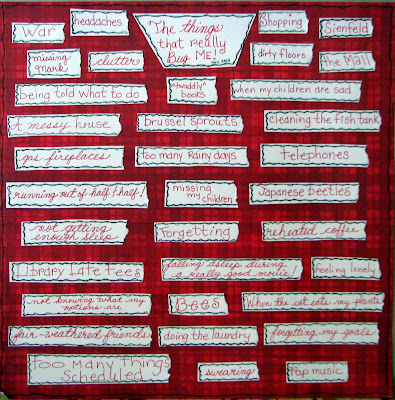 War
headaches
The things
that really
Bug Me!
Shopping
Sienfeld
missing
Mark
clutter
dirty floors
the Mall
being told what to do
"twaddly"
books
when my children are sad
A messy house
Brussel sprouts
cleaning the fish tank
gas fireplaces
too many Rainy days
Telephones
running out of half & half!
missing
my
children
Japanese beetles
not getting
enough sleep
Forgetting
reheated coffee
Library Late Fees
falling asleep during
a really good movie!
feeling lonely
not knowing what my
options are
Bees
When the cat eats my plants
fair-weathered friends
doing the laundry
forgetting my goals
Too Many Things
Scheduled
swearing
Rap music